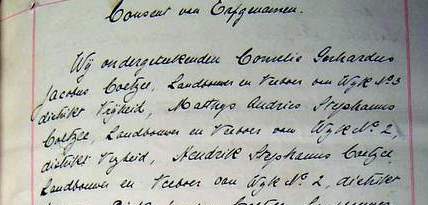 Consent van Erfgenamen.
Wij ondergeteekenden Cornelis Gerhardus
Jacobus Coetzee, Landbouwer en Veeboer van Wyk No 3
distrikt Vrijheid, Matthys Andries Stephanus
Coetzee, Landbouwer en Veeboer van Wyk No 2,
distrikt Vryheid, Hendrik Stephanus Coetzee,
Landbouwer en Veeboer van Wyk No 2, distrikt